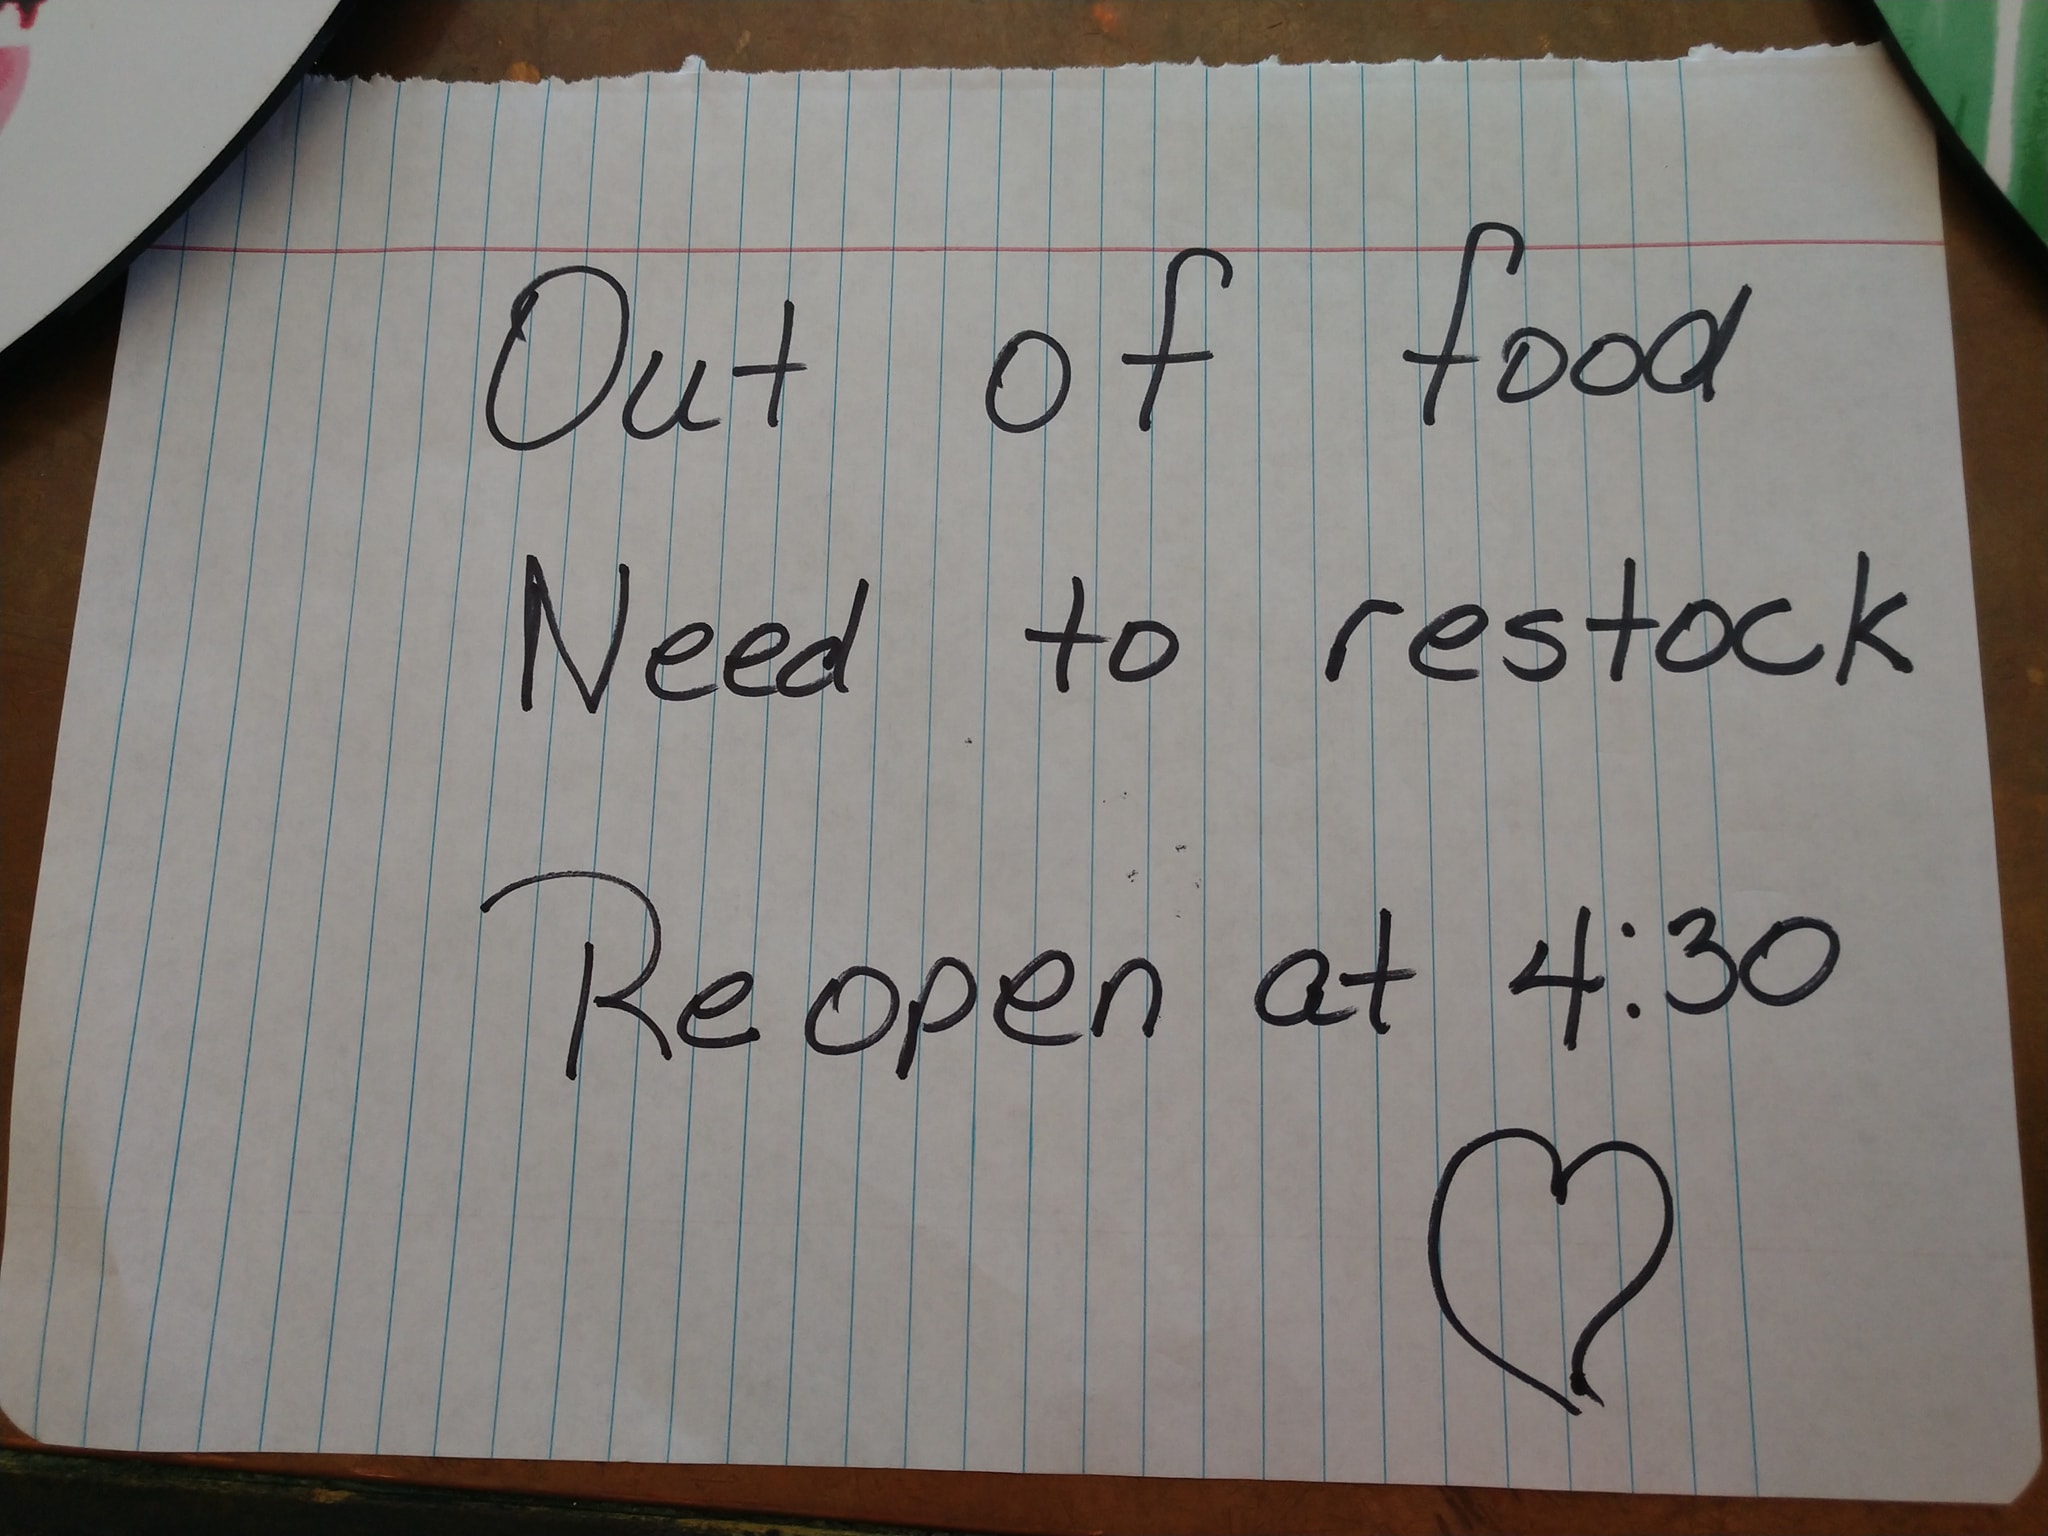 Out of food
Need to restock
Reopen at 4:30